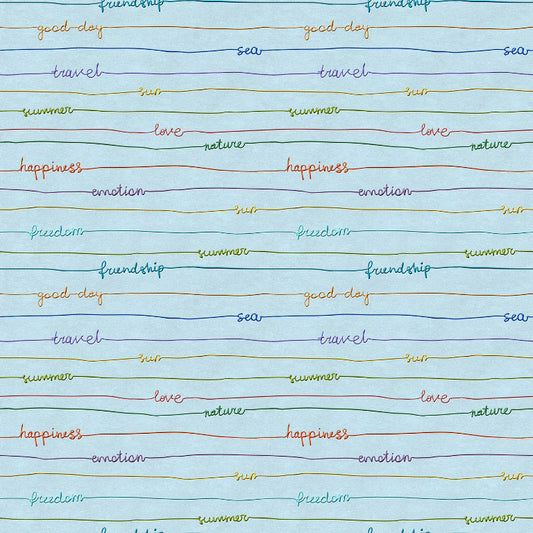 friendship friendship
good day good day
sea sea
travel travel
sun sun
summer summer
love love
nature nature
happiness happiness
emotion emotion
sun sun
freedom freedom
summer summer
friendship friendship
good day good day
sea sea
travel travel
sun sun
summer summer
love love
nature nature
happiness happiness
emotion emotion
sun sun
freedom freedom
summer summer
friendship friendship